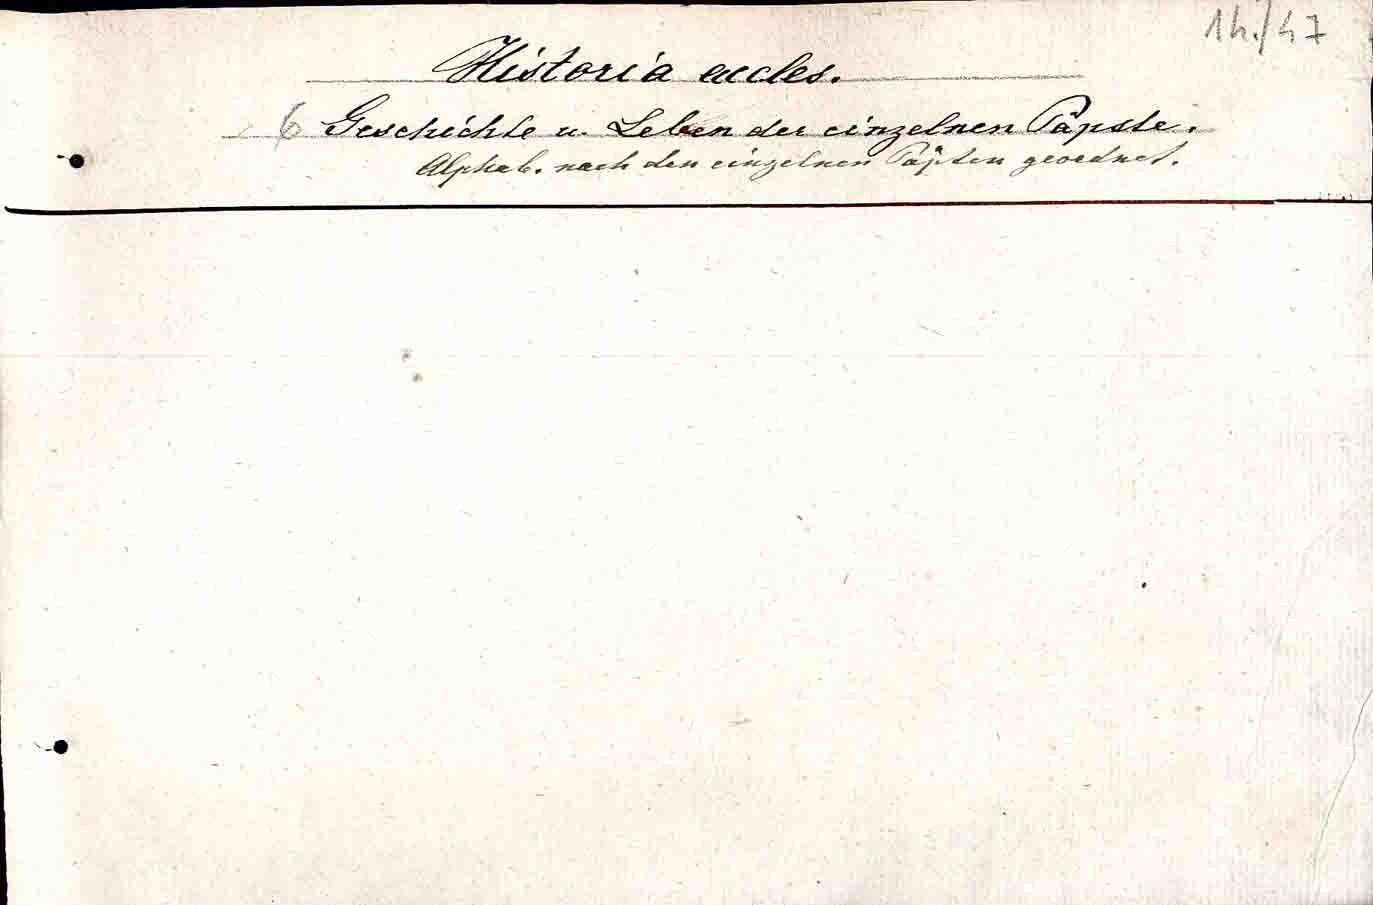 14./47
Historia eccles.
6 Geschichte u. Leben der einzelnen Päpste.
Alphab. nach den einzelnen Päpsten geordnet.